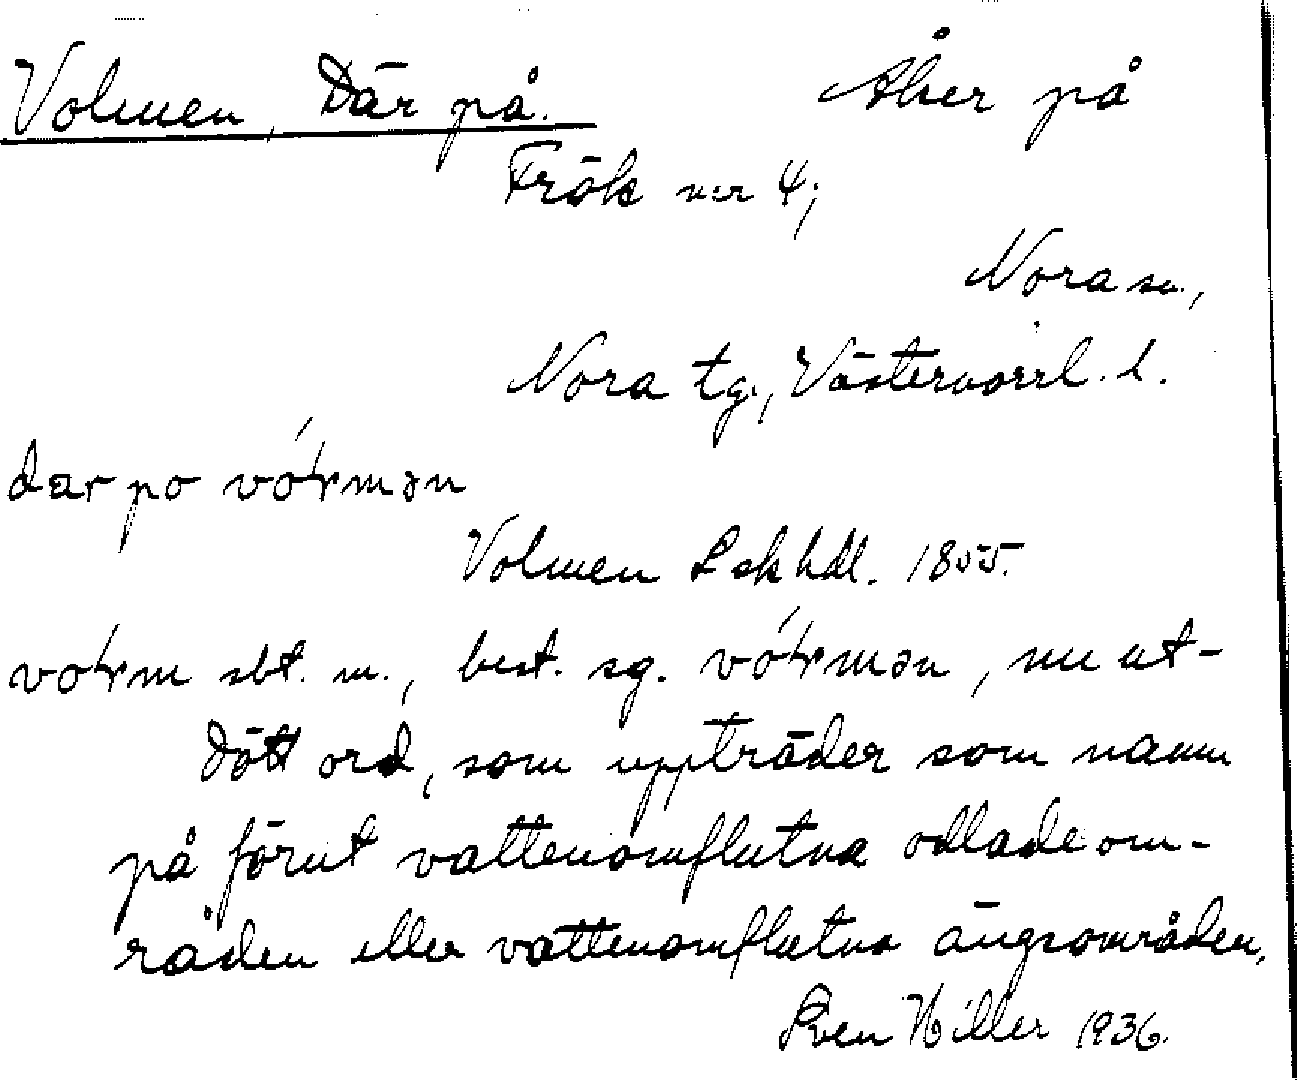 Volmen, Där på. Åker på
Frök nr 4;
Nora sn.,
Nora tg., Västernorrl. l.
dar po
Volmen Lskhdl. 1855.
sbt. m., best. sg. , nu ut-
dött ord, som uppträder som namn
på förut vattenomflutna odlade om-
råden eller vattenomflutna ängsområden.
Sven Hiller 1936.